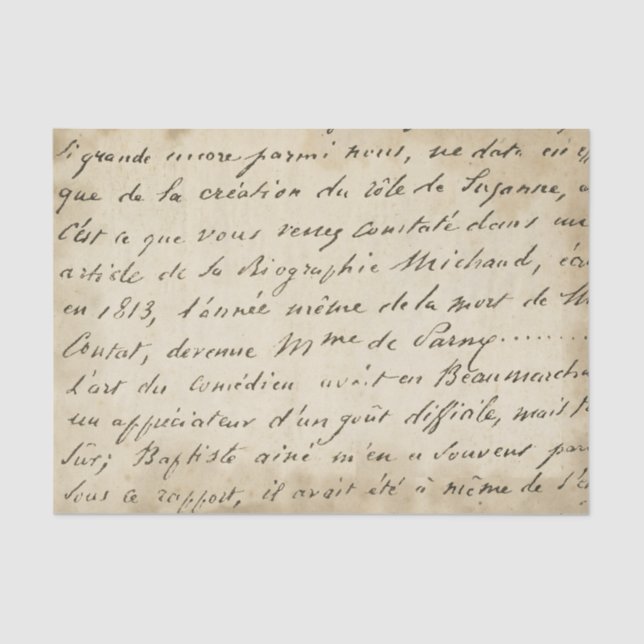 si grande encore parmi nous, ne data en
que de la création du rôle de Suzanne,
C'est ce que vous verrez constaté dans un
article de la Biographie Michaud,
en 1813, l'année même de la mort de
Contat, devenue Mme de Parny........
L'art du comédien avait en Beaumarcha
un appréciateur d'un goût difficile, mais
sûr; Baptiste ainé m'en a souvent
sous ce rapport, il avait été à même de